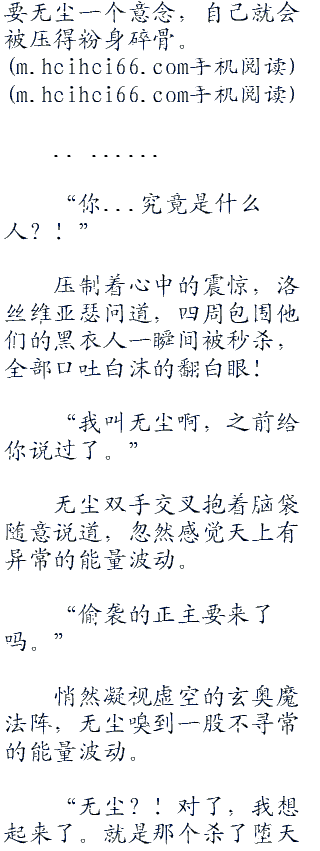 要无尘一个意念，自己就会
被压得粉身碎骨。
(m.hcihci66.com手机阅读)
(m.hcihci66.com手机阅读)
.. ......
“你...究竟是什么
人？！”
压制着心中的震惊，洛
丝维亚瑟问道，四周包围他
们的黑衣人一瞬间被秒杀，
全部口吐白沫的翻白眼！
“我叫无尘啊，之前给
你说过了。”
无尘双手交叉抱着脑袋
随意说道，忽然感觉天上有
异常的能量波动。
“偷袭的正主要来了
吗。”
悄然凝视虚空的玄奥魔
法阵，无尘嗅到一股不寻常
的能量波动。
“无尘？！对了，我想
起来了。就是那个杀了堕天